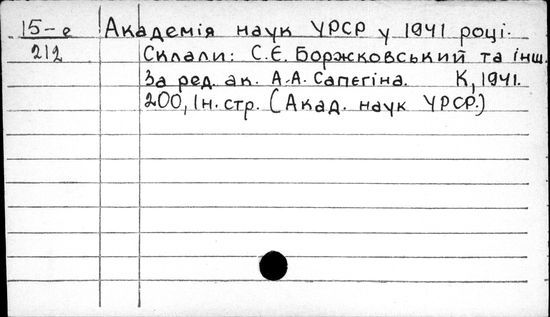 15-е Академія наук УРСР у 1941 році.
212 Склали: С.Є. Боржковський та інш.
За ред. ак. А.А. Сапєгіна. К, 1941.
200, Ін. стр. (Акад. наук УРСР.)